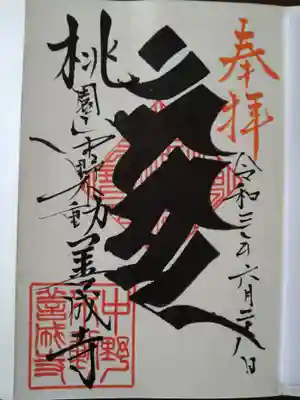 奉拝
令和三年六月二八日
桃園山中野不動善成寺
中野
善成寺